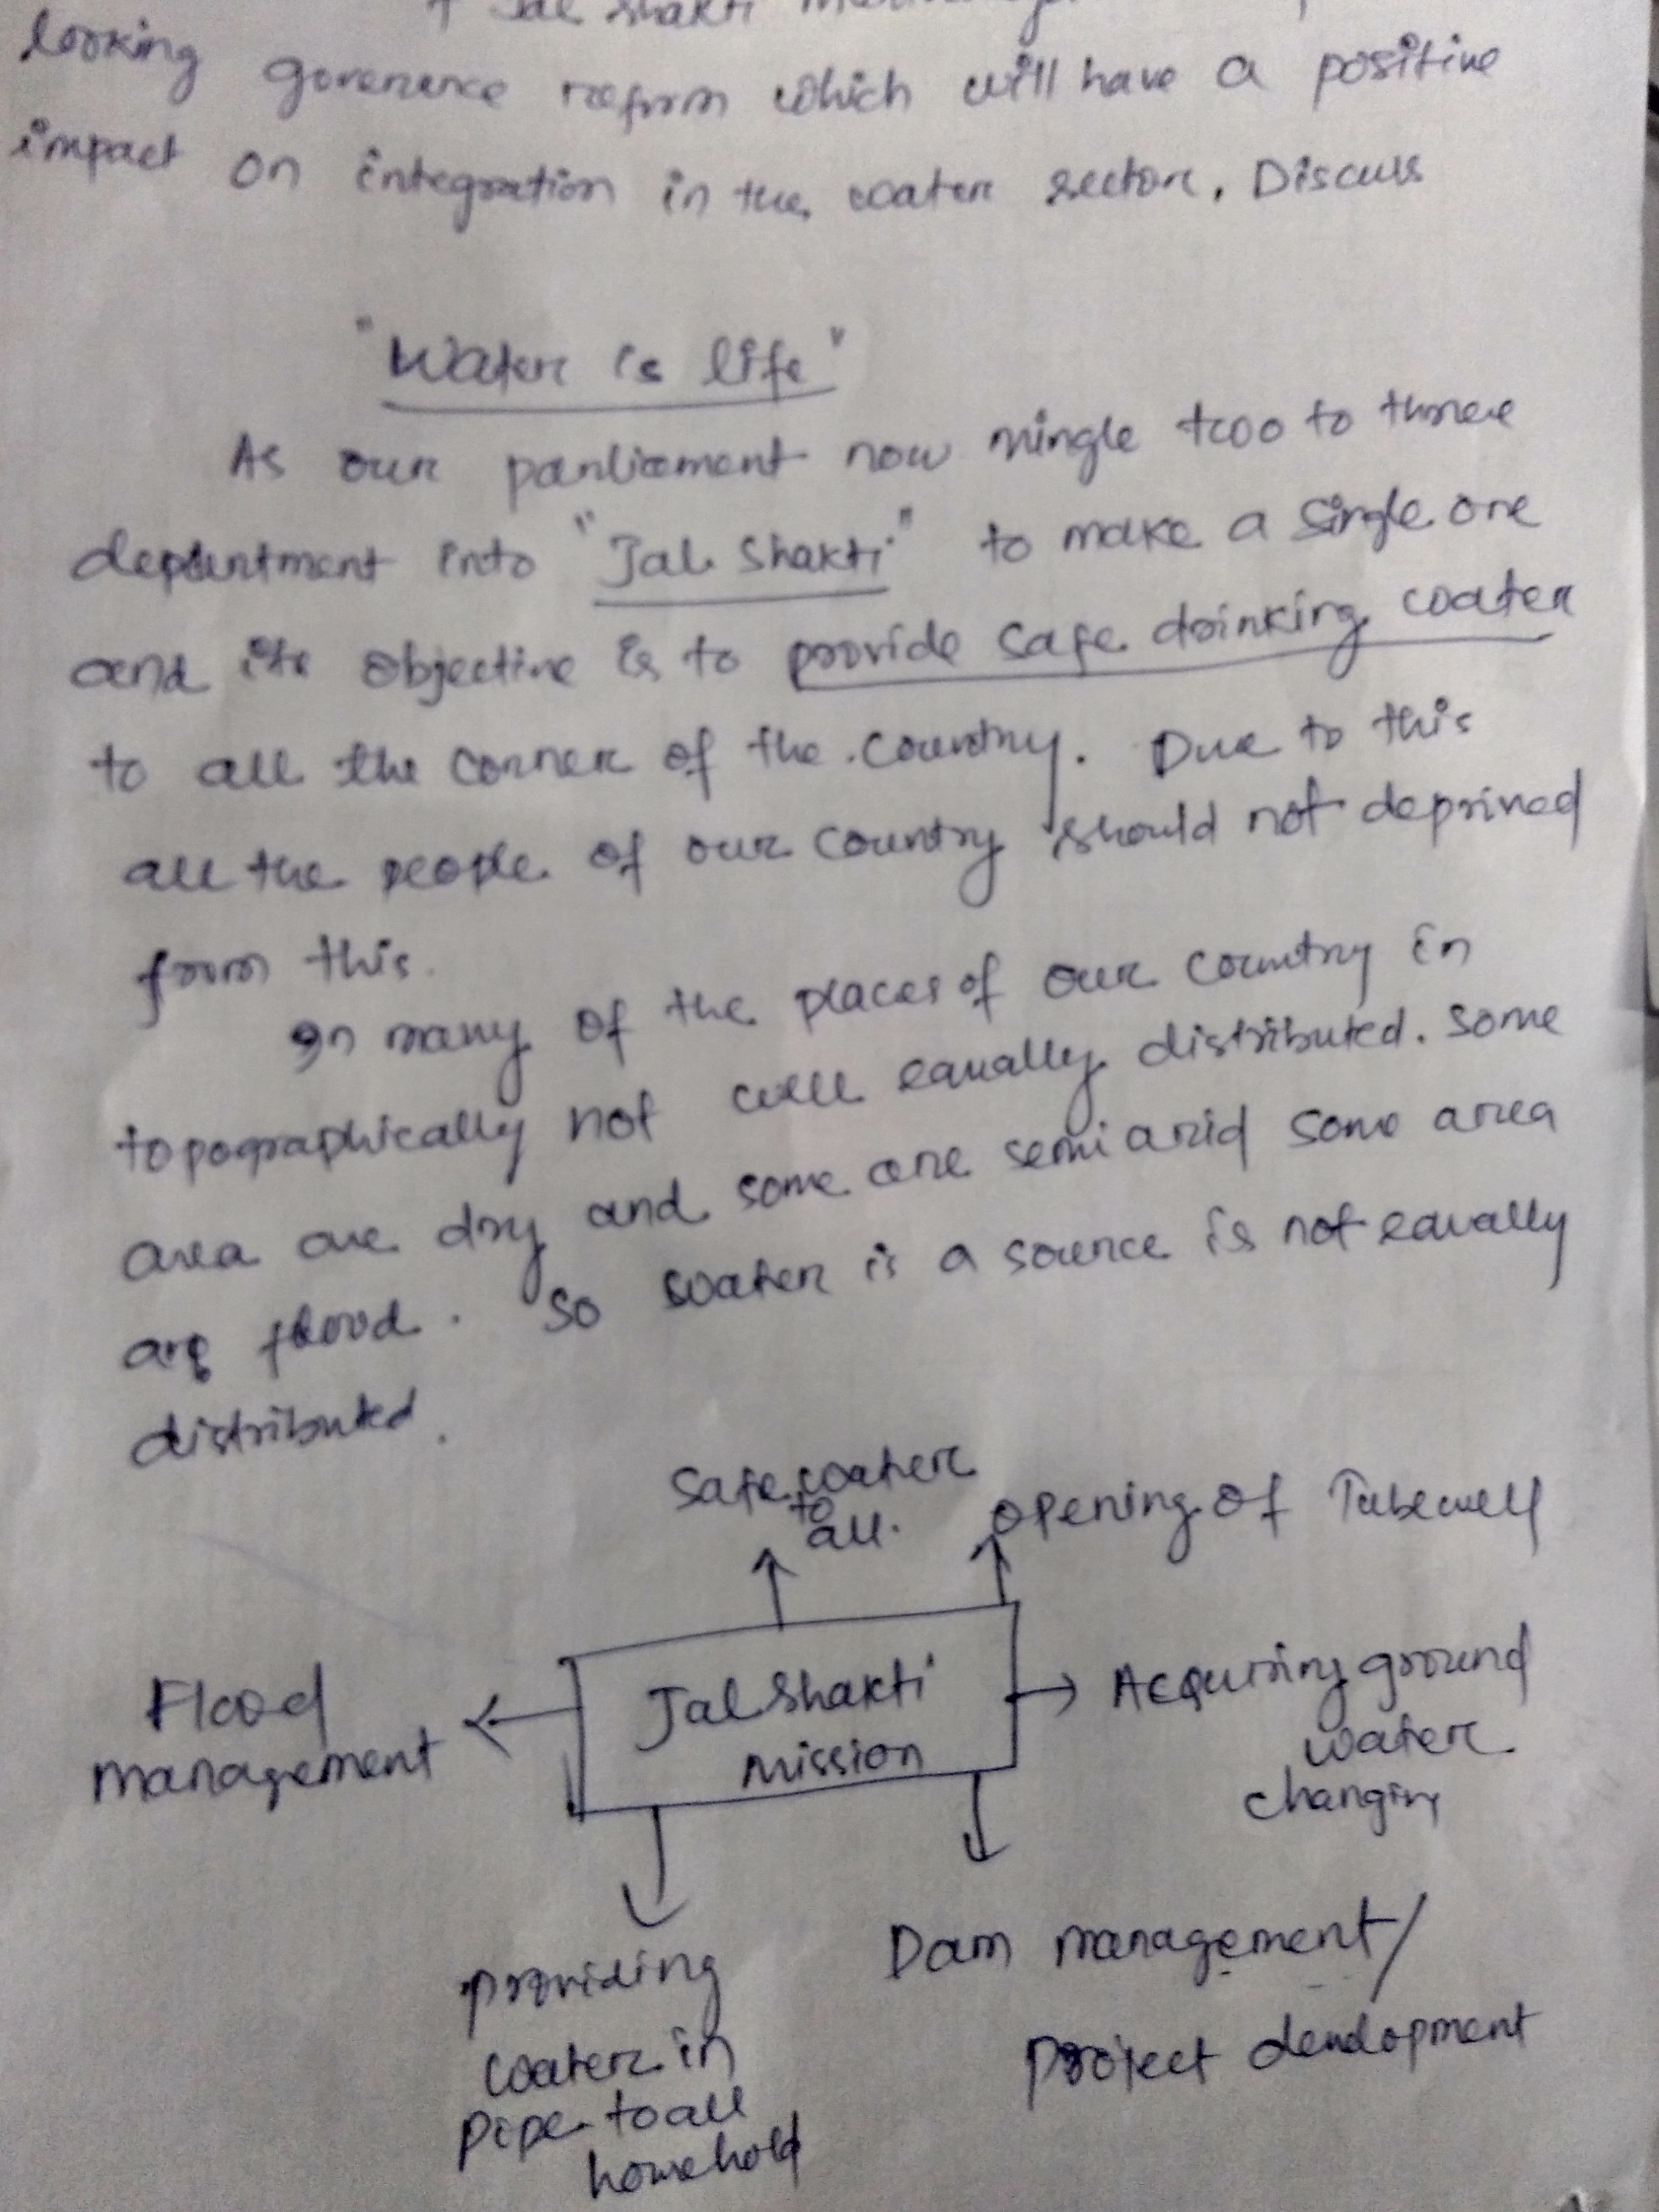 Jal Shakti
looking governence reform which will have a positive
impact on integration in the water sector. Discuss
"Water is life"
As our parliament now mingle two to three
department into "Jal Shakti" to make a single one
and its objective is to provide safe drinking water
to all the corner of the country. Due to this
all the people of our country should not deprived
from this.
In many of the places of our country in
topographically not well equally distributed. Some
area are dry and some are semi arid some area
are flood. So water is a source is not equally
distributed.
Safe water
to
all.
opening of Tubewell
Flood
management
Jal Shakti
mission
Acquiring ground
water
changing
providing
water in
pipe to all
household
Dam management/
Project development